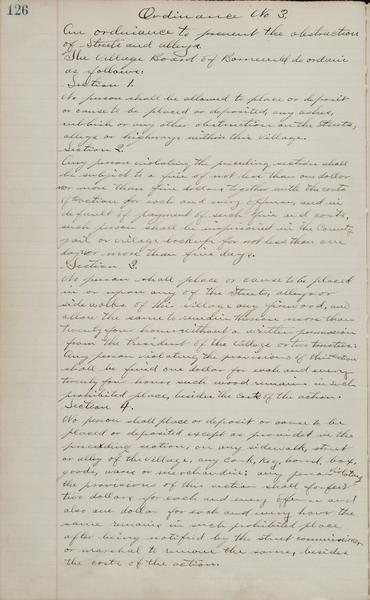 126
Ordinance No 3.
An ordinance to prevent the obstruction
of Streets and alleys.
The Village Board of do ordain
as follows:
Section 1.
No person shall be allowed to place or deposit
or cause to be placed or deposited any ashes,
rubbish or any other obstruction in the Streets,
alleys or highways within this village.
Section 2.
Any person violating the preceding section shall
be subject to a fine of not less than one dollar
nor more than five dollars together with the costs
of action for each and every offense, and in
default of payment of such fine and costs,
such person shall be imprisoned in the County
jail or village lockup for not less than one
day nor more than five days.
Section 3.
No person shall place or cause to be placed
in or upon any of the Streets, alleys or
sidewalks of the village any firewood, and
allow the same to remain therein more than
twenty four hours without a written permission
from the President of the Village or two trustees.
Any person violating the provisions of this section
shall be fined one dollar for each and every
twenty four hours such wood remains in such
prohibited place, besides the costs of the action.
Section 4.
No person shall place or deposit or cause to be
placed or deposited except as provided in the
preceding section, on any sidewalk, street
or alley of the village, any cask, keg, barrel, box,
goods, wares or merchandise; any person violating
the provisions of this section shall forfeit
two dollars for each and every offense and
also one dollar for each and every hour the
same remains in such prohibited place
after being notified by the street commissioner
or marshal to remove the same, besides
the costs of the action.